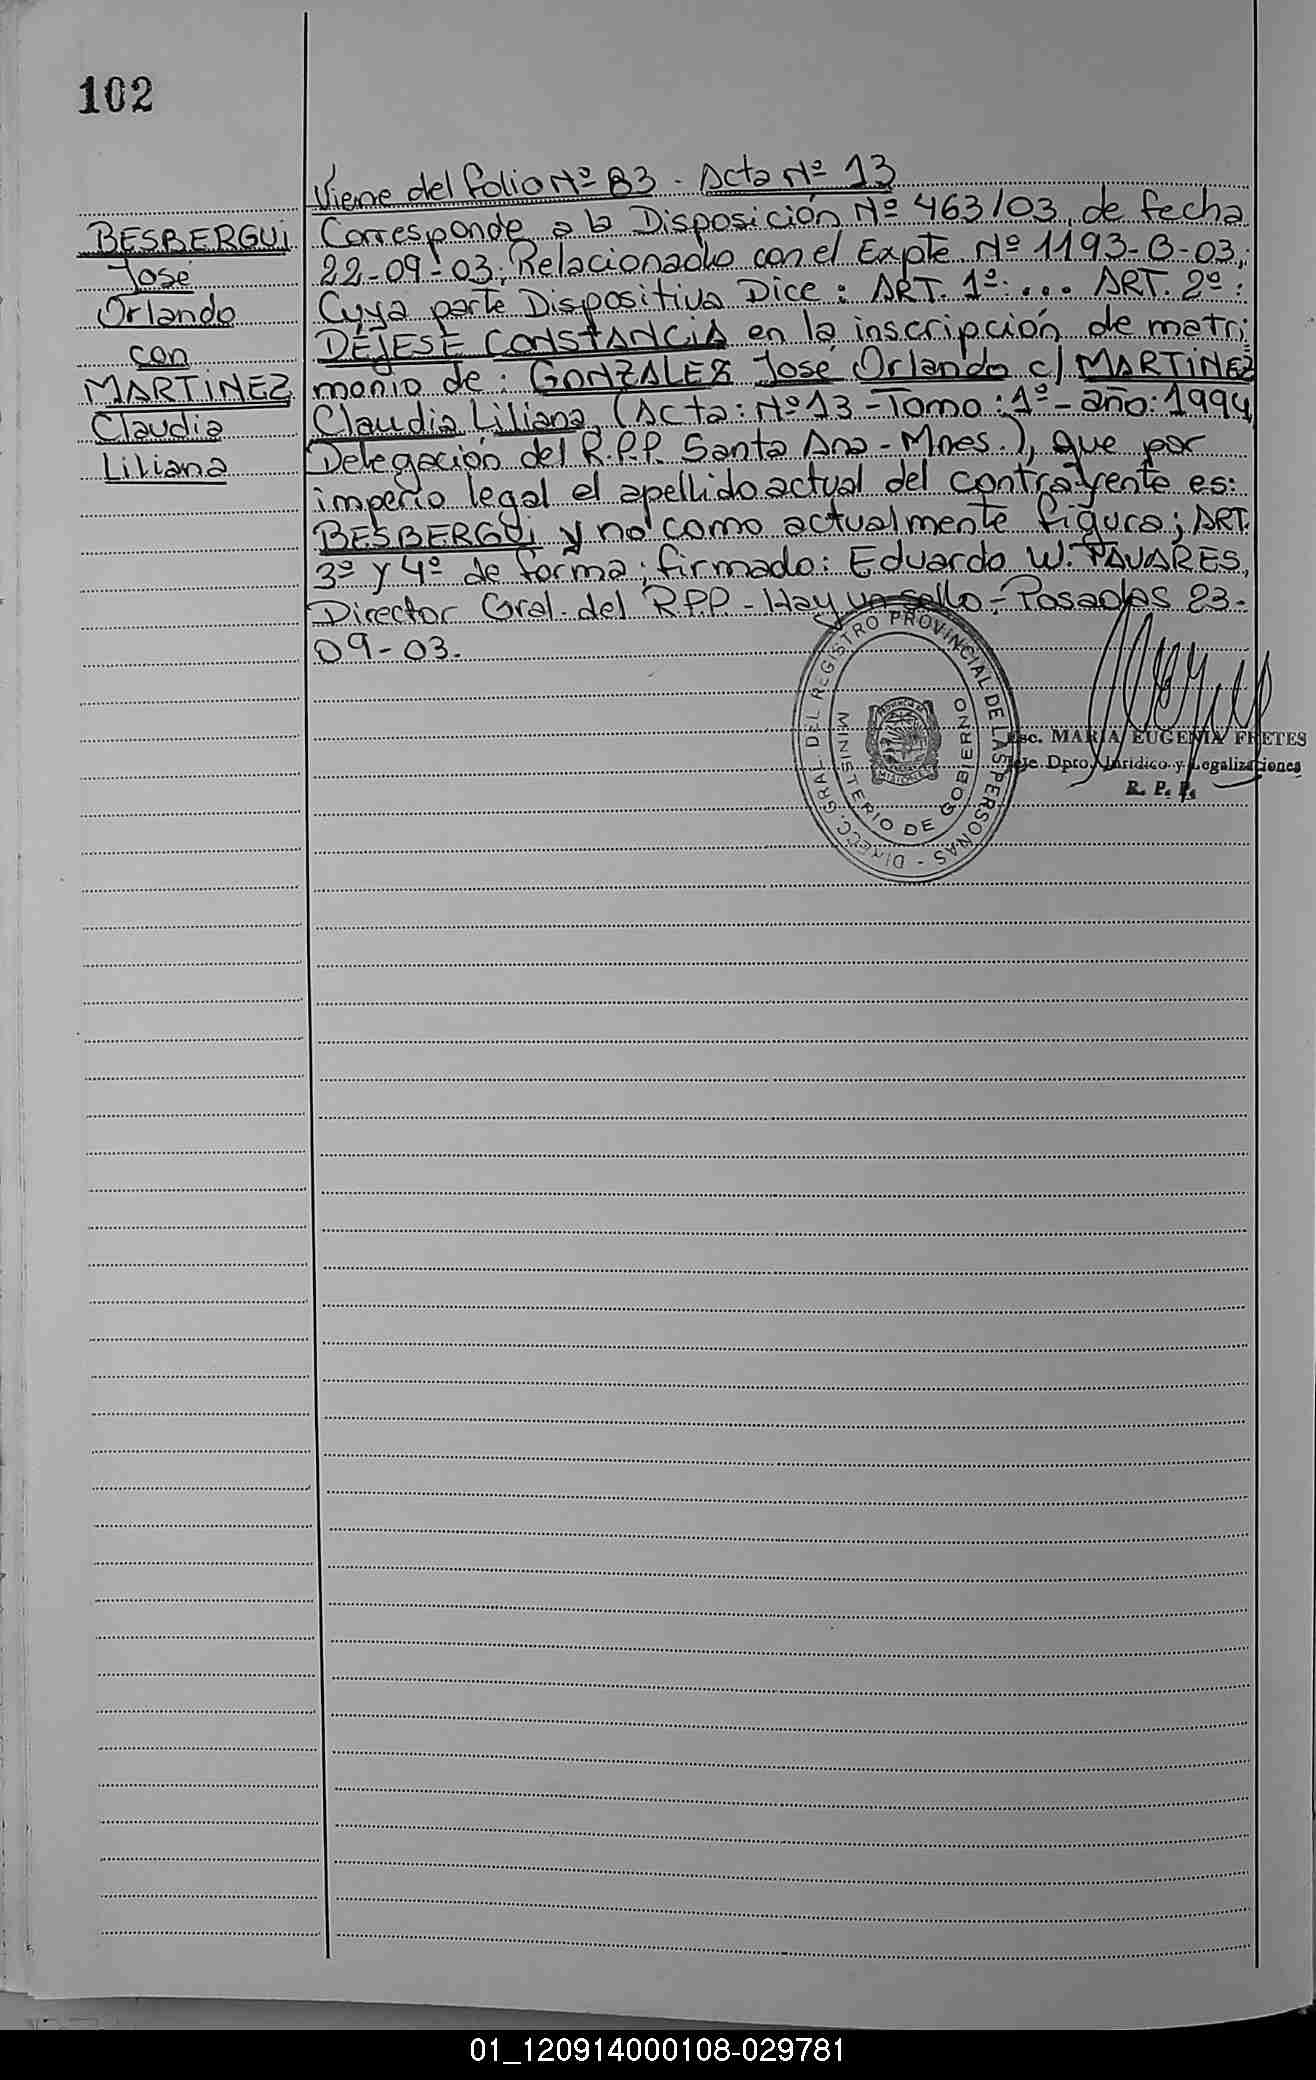 102
Viene del folio Nº 83 - Acta Nº 13
BESBERGUI
José
Orlando
con
MARTINEZ
Claudia
Liliana
Corresponde a la Disposición Nº 463/03, de fecha
22-09-03; Relacionado con el Expte Nº 1193-B-03,;
Cuya parte Dispositiva Dice: ART. 1º:... ART. 2º:
DÉJESE CONSTANCIA en la inscripción de matri
monio de: GONZALEZ José Orlando c/ MARTINEZ
Claudia Liliana, (Acta: Nº 13 - Tomo: 1º - año: 1994
Delegación del R.P.P. Santa Ana - Mnes.), que por
imperio legal el apellido actual del contrayente es:
BESBERGUI y no como actualmente figura; ART.
3º y 4º de forma; firmado: Eduardo W. TAVARES,
Director Gral. del R.P.P - Hay un sello - Posadas 23-
09-03.
DIRECC. GRAL. DEL REGISTRO PROVINCIAL DE LAS PERSONAS -
MINISTERIO DE GOBIERNO
Esc. MARIA EUGENIA FRETES
Jefe Dpto. Jurídico y Legalizaciones
R. P. P.
01_120914000108-029781